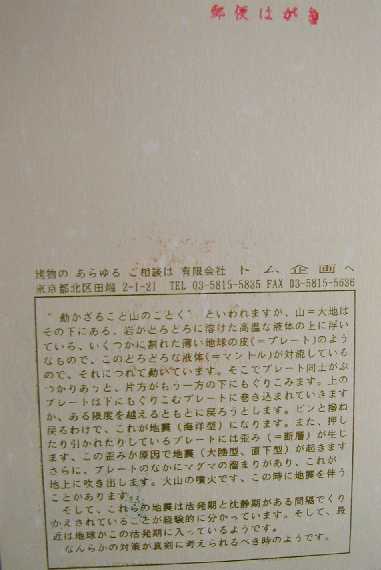 郵便はがき
残物の あらゆる ご相談は 有限会社 トム企画へ
東京都北区田端 2-1-21 TEL 03-5815-5835 FAX 03-5815-5636
"動かざること山のごとく" といわれますが、山＝大地は
その下にある、岩がどろどろに溶けた高温な液体の上に浮い
ている、いくつかに割れた薄い地球の皮(＝プレート)のよう
なもので、このどろどろな液体(＝マントル)が対流している
ので、それにつれて動いています。そこでプレート同士がぶ
つかりあっと、片方がもう一方の下にもぐりこみます。上の
プレートは下にもぐりこむプレートに巻き込まれていきます
が、ある限度を越えるともとに戻ろうとします。ピンと撥ね
戻るわけで、これが地震(海洋型)になります。また、押し
たり引かれたりしているプレートには歪み(＝断層)が生じ
ます、この歪みが原因で地震(大陸型、直下型)が起きます
さらに、プレートのなかにマグマの溜まりがあり、これが
地上に吹き出します。火山の噴火です、この時に地震を伴う
ことがあります。
そして、これらの地震は活発期と沈静期がある間隔でくり
かえされていることが経験的に分かっています。そして、最
近は地球がこの活発期に入っているようです。
なんらかの対策が真剣に考えられるべき時のようです。